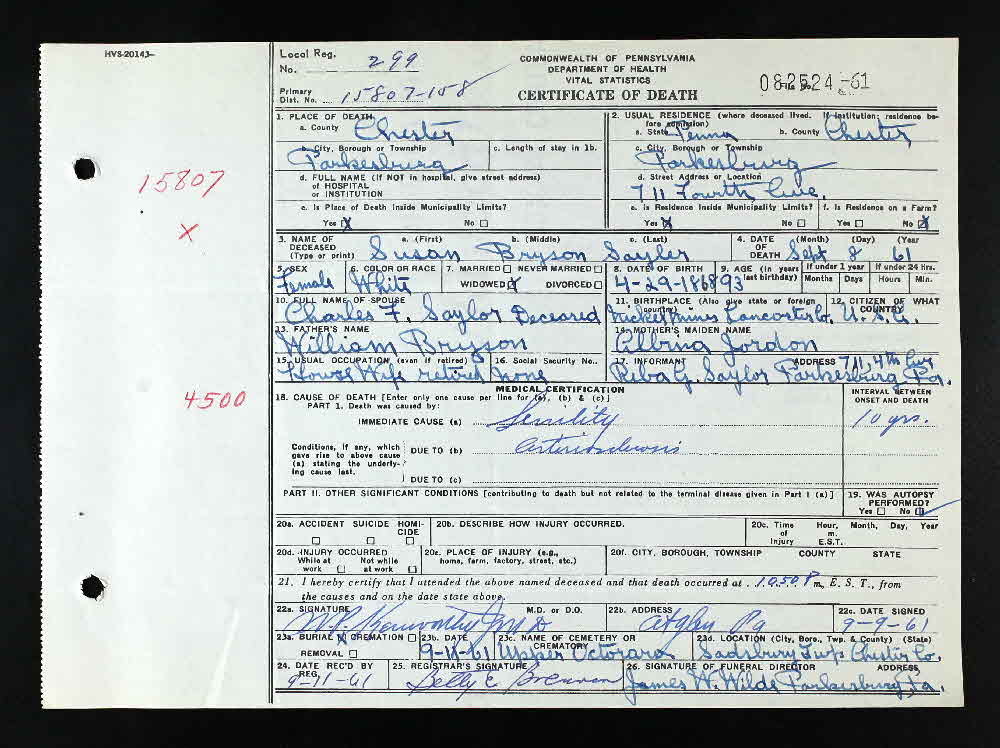 HVS-20143-
Local Reg. No. 299
COMMONWEALTH OF PENNSYLVANIA
DEPARTMENT OF HEALTH
VITAL STATISTICS
CERTIFICATE OF DEATH
File No. 082524-61
Primary Dist. No. 15807-158
15807
X
4500
1. PLACE OF DEATH
a. County Chester
b. City, Borough or Township Parkesburg
c. Length of stay in 1b.
d. FULL NAME (If NOT in hospital, give street address) of HOSPITAL or INSTITUTION
e. Is Place of Death Inside Municipality Limits?
Yes X No
2. USUAL RESIDENCE (where deceased lived. If institution: residence before admission)
a. State Penna b. County Chester
c. City, Borough or Township Parkesburg
d. Street Address or Location
711 Fourth Ave.
e. Is Residence Inside Municipality Limits? f. Is Residence on a Farm?
Yes X No Yes No X
3. NAME OF DECEASED (Type or print) a. (First) b. (Middle) c. (Last)
Susan Bryson Saylor
4. DATE OF DEATH (Month) (Day) (Year
Sept 8 61
5. SEX Female
6. COLOR OR RACE White
7. MARRIED NEVER MARRIED
WIDOWED X DIVORCED
8. DATE OF BIRTH 4-29-1868
9. AGE (In years last birthday) 93
If under 1 year Months Days
If under 24 Hrs. Hours Min.
10. FULL NAME OF SPOUSE
Charles F. Saylor Deceared
11. BIRTHPLACE (Also give state or foreign country)
Nickel mines Lancoster Co.
12. CITIZEN OF WHAT COUNTRY? U.S.A.
13. FATHER'S NAME
William Bryson
14. MOTHER'S MAIDEN NAME
Albina Jordon
15. USUAL OCCUPATION (even if retired)
House Wife retired
16. Social Security No..
none
17. INFORMANT ADDRESS 711, 4th Ave
Reba G. Saylor Parkesburg Pa.
MEDICAL CERTIFICATION
18. CAUSE OF DEATH [Enter only one cause per line for (a), (b) & (c)]
PART 1. Death was caused by:
INTERVAL BETWEEN ONSET AND DEATH
IMMEDIATE CAUSE (a) Senility 10 yrs.
Conditions, if any, which gave rise to above cause (a) stating the underlying cause last.
DUE TO (b) Arteriosclerosis
DUE TO (c)
PART II. OTHER SIGNIFICANT CONDITIONS [contributing to death but not related to the terminal disease given in Part I (a)]
19. WAS AUTOPSY PERFORMED?
Yes No
20a. ACCIDENT SUICIDE HOMICIDE
20b. DESCRIBE HOW INJURY OCCURRED.
20c. Time of Injury Hour, Month, Day, Year
m. E.S.T.
20d. INJURY OCCURRED
While at work Not while at work
20e. PLACE OF INJURY (e.g., home, farm, factory, street, etc.)
20f. CITY, BOROUGH, TOWNSHIP COUNTY STATE
21. I hereby certify that I attended the above named deceased and that death occurred at 10:50 P m, E. S. T., from
the causes and on the date state above.
22a. SIGNATURE M.D. or D.O.
W. P. Kenworthy Jr M D
22b. ADDRESS
Atglen Pa
22c. DATE SIGNED
9-9-61
23a. BURIAL X CREMATION
REMOVAL
23b. DATE
9-11-61
23c. NAME OF CEMETERY OR CREMATORY
Upper Octorara
23d. LOCATION (City, Boro., Twp. & County) (State)
Sadsbury Twp Chester Co.
24. DATE REC'D BY REG.
9-11-61
25. REGISTRAR'S SIGNATURE
Betty E Brennan
26. SIGNATURE OF FUNERAL DIRECTOR ADDRESS
James W. Wilde Parkesburg, Pa.